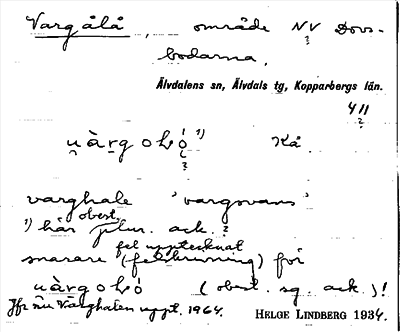 Vargålå, område NV Dovs-
?
bodarna.
Älvdalens sn, Älvdals tg, Kopparbergs län.
411
?
u̯àrgohó 1) Kå.
?
varghale 'vargsvans'
1) här obest. plur. ack.?
fel upptecknat
snarare (felskrivning) för
u̯àrgohó (obest. sg. ack.)!
Jfr nu Varghalen uppt. 1964.
HELGE LINDBERG 1934.